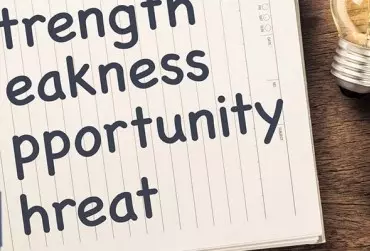 trength
eakness
pportunity
hreat